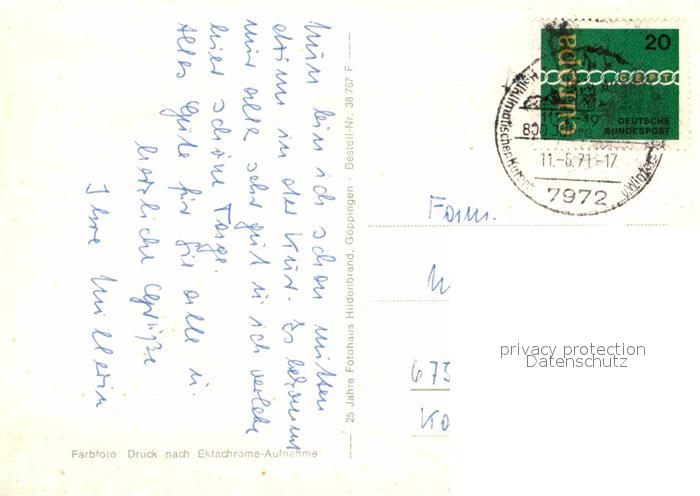 Nun bin ich schon mitten
drinn in der Kur. Es bekommt
mir alles sehr gut u ich verlebe
hier schöne Tage.
Alles Gute für Sie alle u.
herzliche Grüße
Ihre Müllerin
25 Jahre Fotohaus Hildenbrand, Göppingen · Bestell-Nr. 38 767 F
Farbfoto Druck nach Ektachrome-Aufnahme
europa
20
CEPT
DEUTSCHE
BUNDESPOST
11.-6.71-17
7972
Fam.
675
Ka
privacy protection
Datenschutz